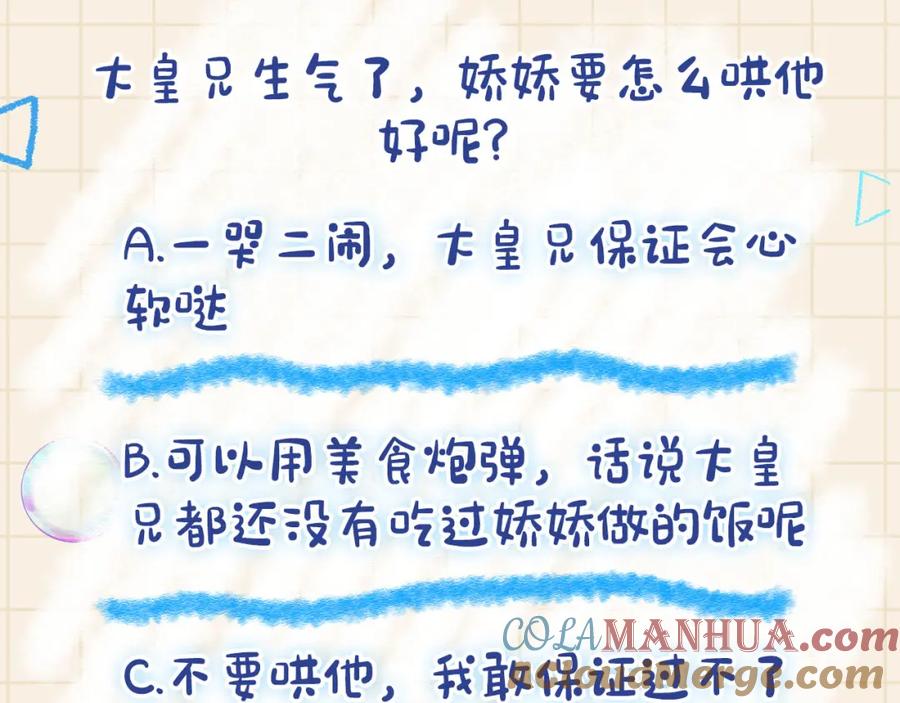 大皇兄生气了，娇娇要怎么哄他
好呢？
A.一哭二闹，大皇兄保证会心
软哒
B.可以用美食炮弹，话说大皇
兄都还没有吃过娇娇做的饭呢
COLAMANHUA.com
C.不要哄他，我敢保证过不了
acloudmerge.com